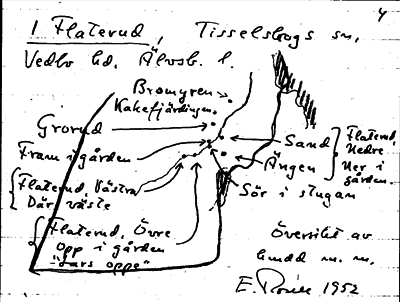 4
1 Flaterud, Tisselskogs sn,
Vedbo hd. Älvsb. l.
Bromyren
Kakefjärdingen.
Grorud
Fram i gården
Flaterud, Västra
Där väste
Flaterud, Övre
Opp i gården
"Lars oppe"
Sand
Ängen
Sör i stugan
Flaterud,
Nedre
Ner i
gården.
Översikt av
m. m.
E. 1952